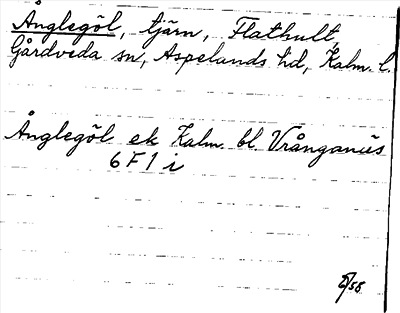 Ånglegöl, tjärn, Flathult,
Gårdveda sn, Aspelands hd, Kalm. l.
Ånglegöl ek Kalm. bl. Vrånganäs
6 F 1 i
/58